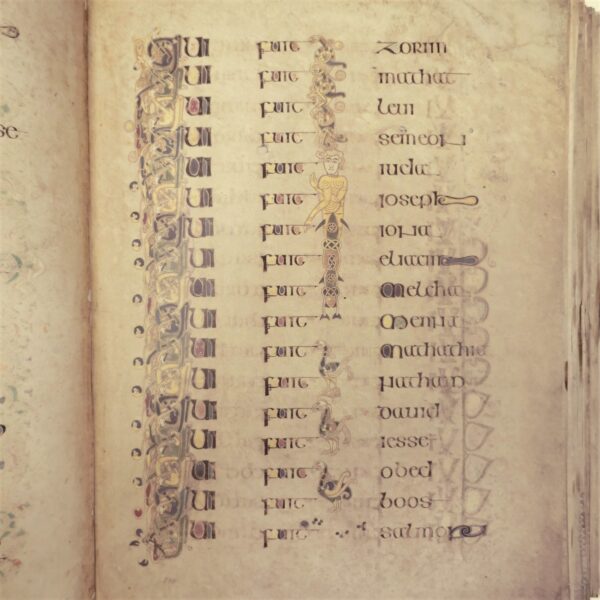 se
Qui fuit zorim
Qui fuit mathat
Qui fuit leui
Qui fuit semeon
Qui fuit iuda
Qui fuit ioseph
Qui fuit iona
Qui fuit eliacim
Qui fuit melcha
Qui fuit menna
Qui fuit mathathia
Qui fuit nathan
Qui fuit dauid
Qui fuit iesse
Qui fuit obed
Qui fuit boos
Qui fuit salmon